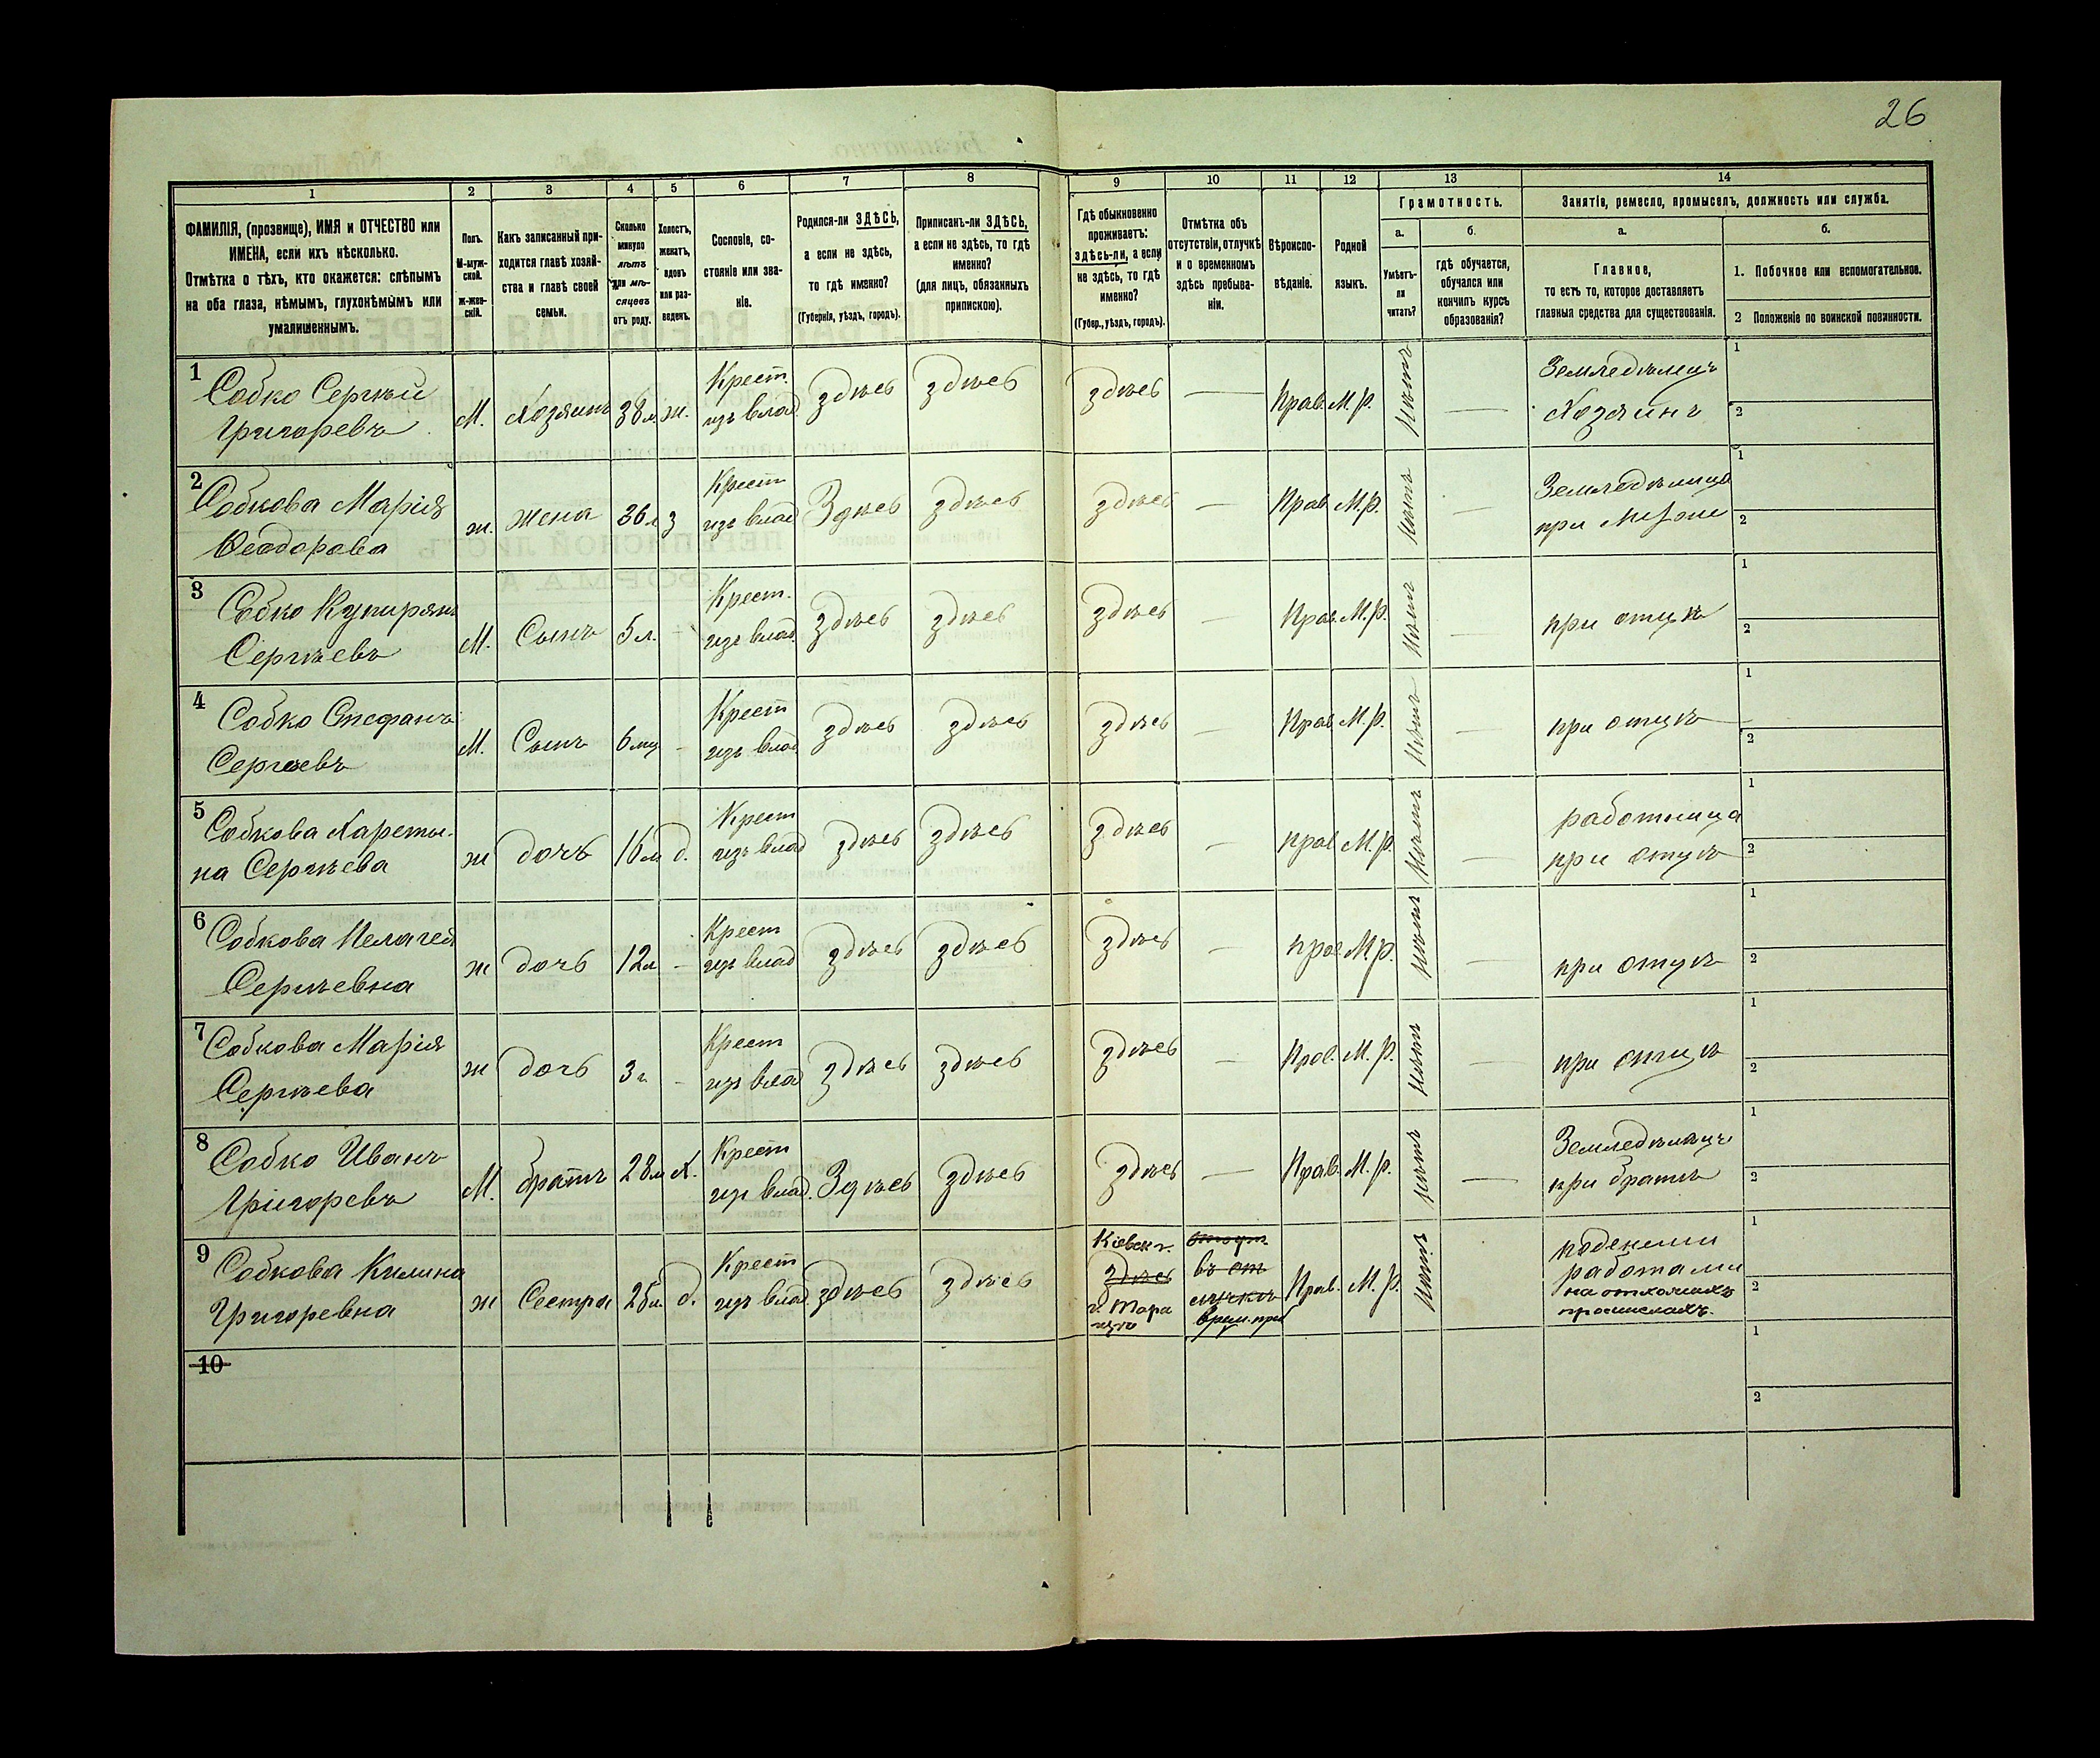 26
1 2 3 4 5 6 7 8 9 10 11 12 13 14
ФАМИЛІЯ, (прозвище), ИМЯ и ОТЧЕСТВО или
ИМЕНА, если ихъ нѣсколько.
Отмѣтка о тѣхъ, кто окажется: слѣпымъ
на оба глаза, нѣмымъ, глухонѣмымъ или
умалишеннымъ.
Полъ.
М-муж-
ской.
Ж-жен-
скій.
Какъ записанный при-
ходится главѣ хозяй-
ства и главѣ своей
семьи.
Сколько
минуло
лѣтъ
или мѣ-
сяцевъ
отъ роду.
Холостъ,
женатъ,
вдовъ
или раз-
веденъ.
Сословіе, со-
стояніе или зва-
ніе.
Родился-ли ЗДѢСЬ,
а если не здѣсь,
то гдѣ именно?
(Губернія, уѣздъ, городъ).
Приписанъ-ли ЗДѢСЬ,
а если не здѣсь, то гдѣ
именно?
(для лицъ, обязанныхъ
припискою).
Гдѣ обыкновенно
проживаетъ:
здѣсь-ли, а если
не здѣсь, то гдѣ
именно?
(Губер., уѣздъ, городъ).
Отмѣтка объ
отсутствіи, отлучкѣ
и о временномъ
здѣсь пребыва-
ніи.
Вѣроиспо-
вѣданіе.
Родной
языкъ.
Грамотность.
а.
Умѣетъ-
ли
читать?
б.
гдѣ обучается,
обучался или
кончилъ курсъ
образованія?
Занятіе, ремесло, промыселъ, должность или служба.
а.
Главное,
то есть то, которое доставляетъ
главныя средства для существованія.
б.
1. Побочное или вспомогательное.
2 Положеніе по воинской повинности.
1 Собко Сергѣй
Григоревъ
М. Хозяинъ 38 л. ж.
Крест.
изъ влад
здѣсь здѣсь здѣсь — Прав. М. р. Нѣтъ —
Земледѣлецъ
Хозяинъ
1
2
2 Собкова Марія
Ѳеодорова
ж. жена 36 л з
Крест
изъ влад
Здѣсь здѣсь здѣсь — Прав М.р. Нѣтъ —
Земледѣлица
при мужѣ
1
2
3 Собко Куприянъ
Сергѣевъ
М. Сынъ 5 л. -
Крест.
изъ влад.
здѣсь здѣсь здѣсь — Прав. М.р. Нѣтъ —
при отцѣ
1
2
4 Собко Стефанъ
Сергѣевъ
М. Сынъ 6 мц -
Крест
изъ влад
здѣсь здѣсь здѣсь — Прав. М.р. Нѣтъ —
при отцѣ
1
2
5 Собкова Харети-
на Сергѣева
ж дочь 16 л д.
Крест
изъ влад
здѣсь здѣсь здѣсь — прав М.р. Нѣтъ —
работница
при отцѣ
1
2
6 Собкова Пелагея
Сергѣевна
ж дочь 12 л -
Крест
изъ влад
здѣсь здѣсь здѣсь — прав М.р. Нѣтъ —
при отцѣ
1
2
7 Собкова Марія
Сергѣева
ж дочь 3 г -
Крест
изъ влад
здѣсь здѣсь здѣсь — Прав. М.р. Нѣтъ —
при отцѣ
1
2
8 Собко Иванъ
Григоревъ
М. братъ 28 л х.
Крест
изъ влад.
Здѣсь здѣсь здѣсь — Прав. М.р. Нѣтъ —
Земледѣлецъ
при братѣ
1
2
9 Собкова Килина
Григоревна
ж Сестра 25 л. д.
Крест
изъ влад.
здѣсь здѣсь
Кіевск г.
здѣсь
г. Тара
ща
въ от
лучкѣ
врем. пре
Прав. М.р. Нѣтъ
поденными
работами
на отхожихъ
промислахъ.
1
2
10
1
2